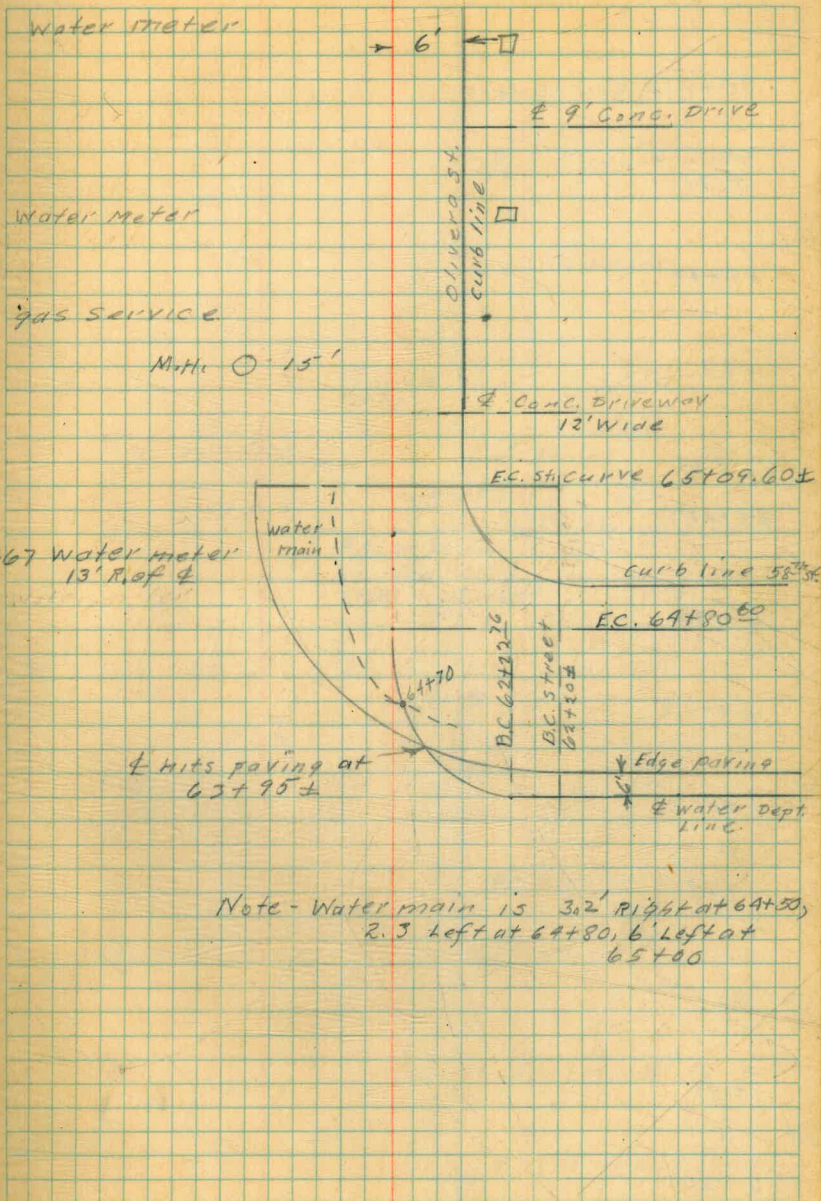 Water meter
6'
℄ 9' Conc. Drive
Olivera St.
curb line
Water Meter
gas service
M.H. 15'
℄ Conc. Driveway
12' Wide
E.C. St. Curve 65+09.60±
water
main
67 Water meter
13' R. of ℄
curb line 58th St.
E.C. 64+80 60
B.C. 62+22 76
B.C. Street
62+20±
64+70
℄ Hits paving at
63+95±
Edge paving
6'
℄ Water Dept.
Line.
Note - Water main is 3.2' Right at 64+50,
2.3 Left at 64+80, 6' Left at
65+00